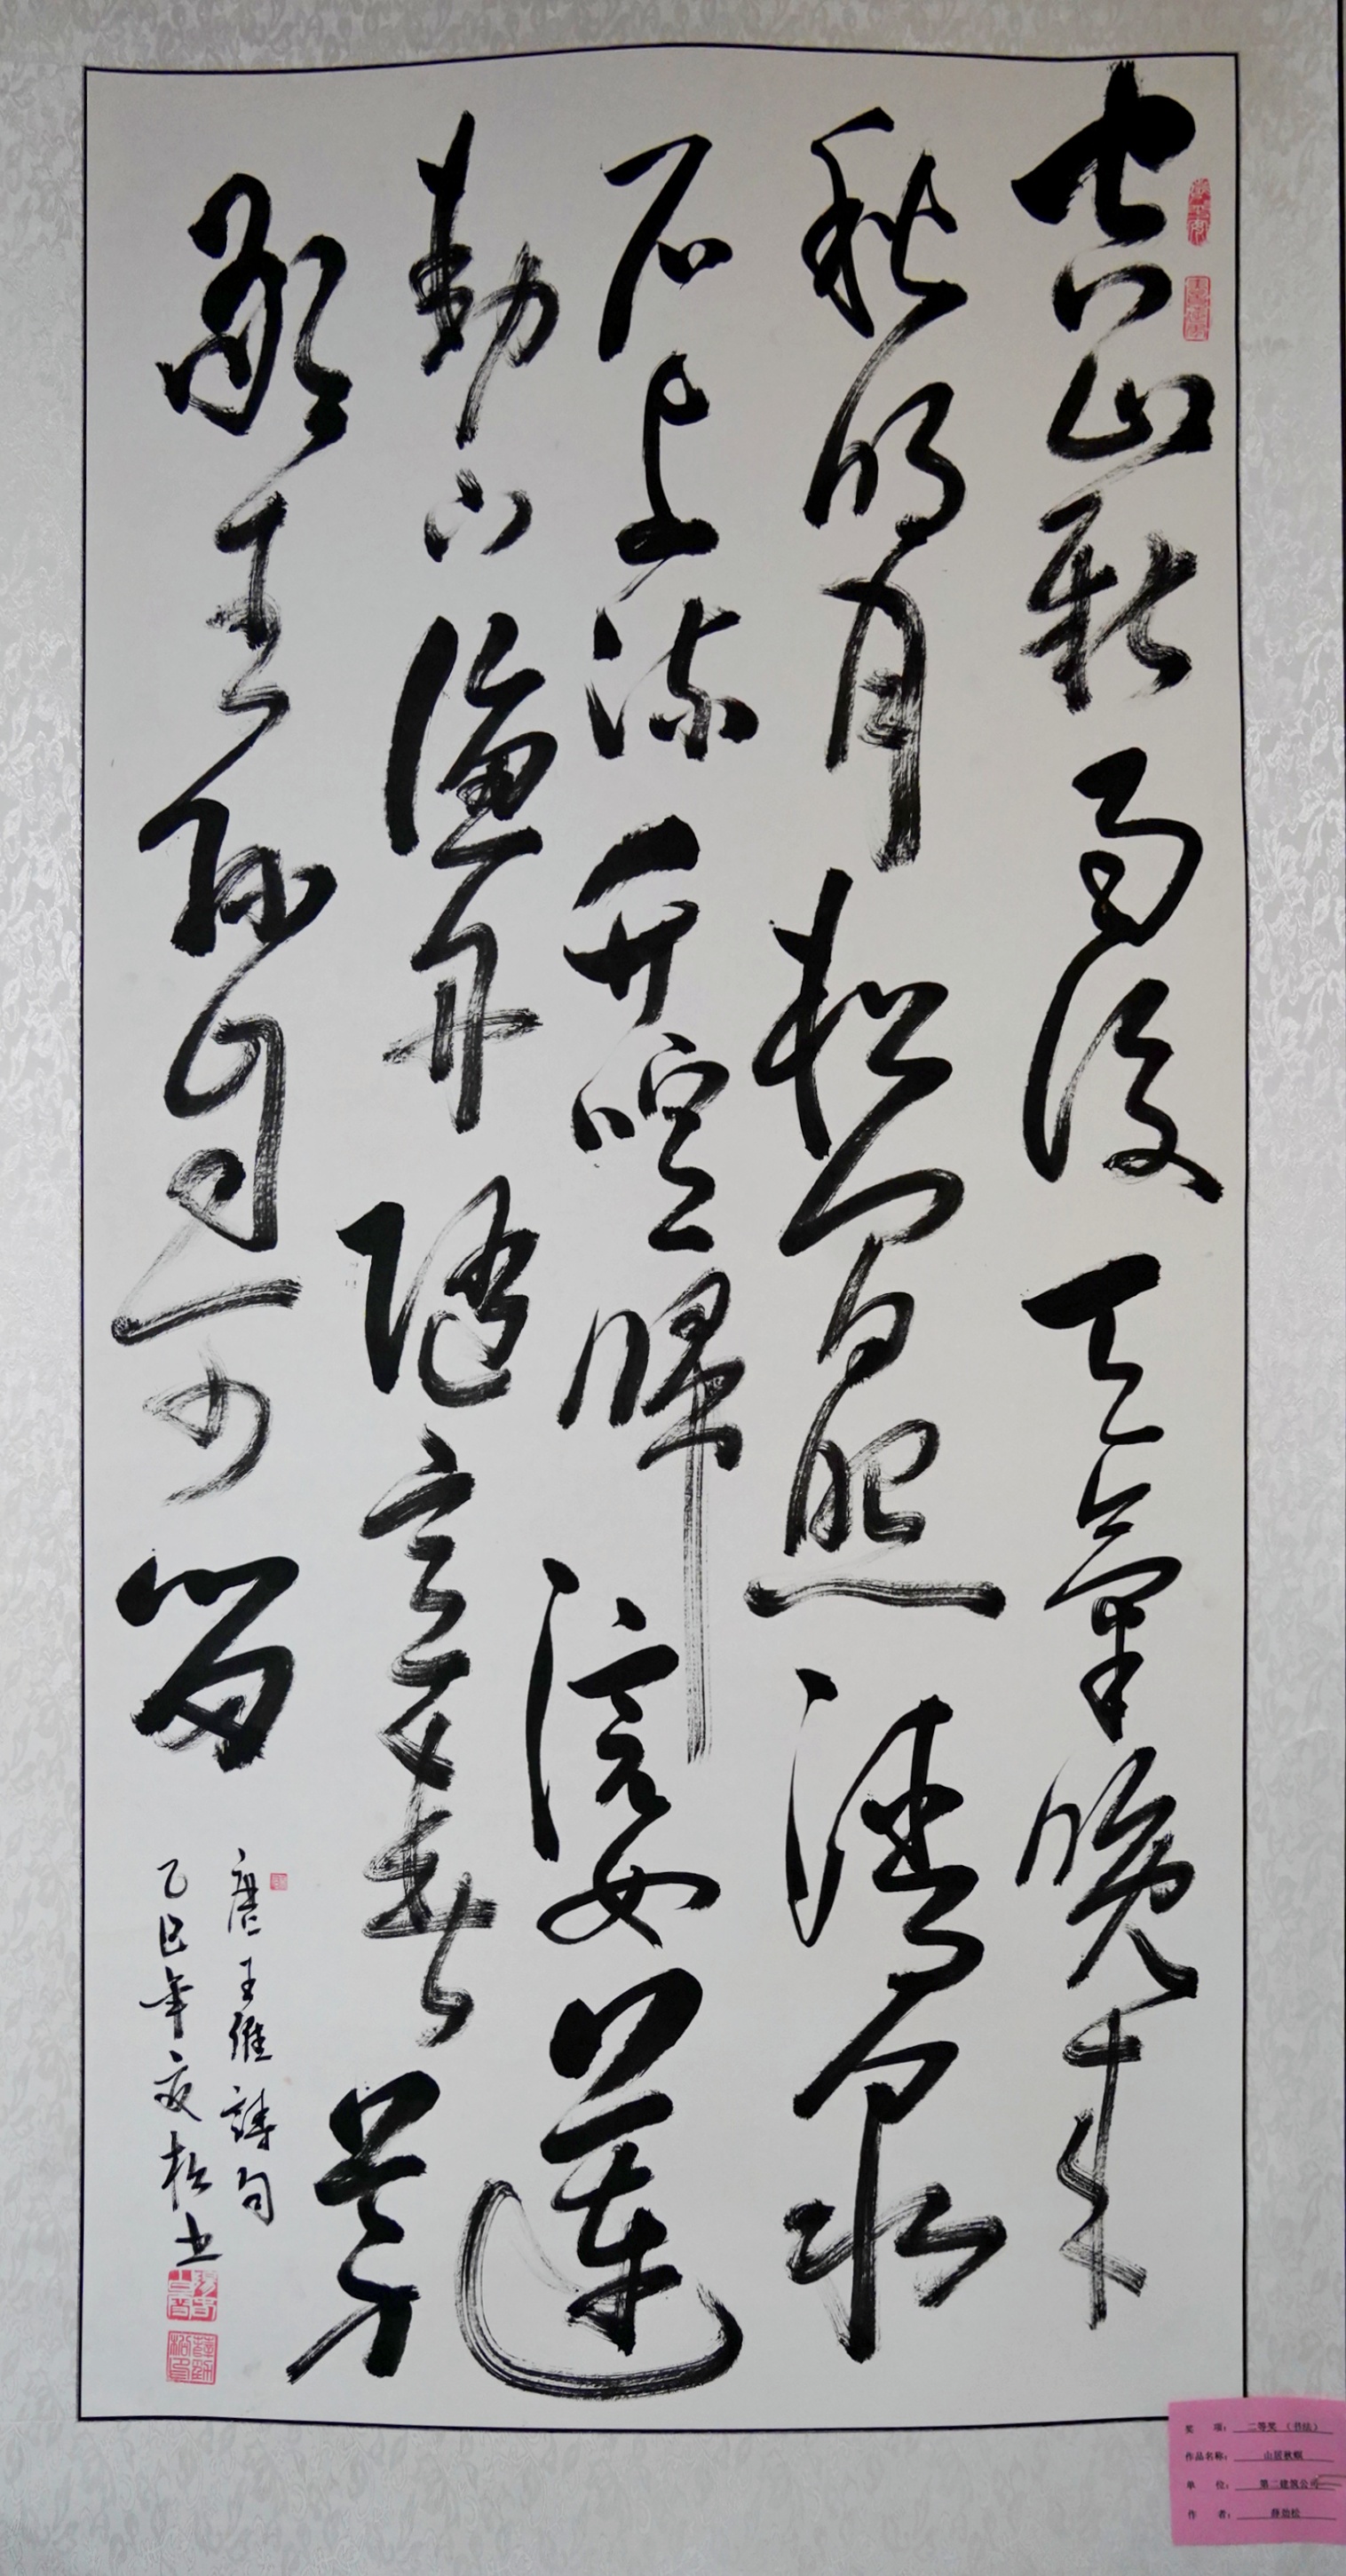 空山新雨後天氣晚来
秋明月松間照清泉
石上流竹喧歸浣女蓮
動下漁舟随意春芳
歇王孫自可留
唐王維詩句
乙巳年夏松书
奖 项： 二等奖 （书法）
作品名称： 山居秋暝
单 位： 第二建筑公司
作 者： 薛劲松